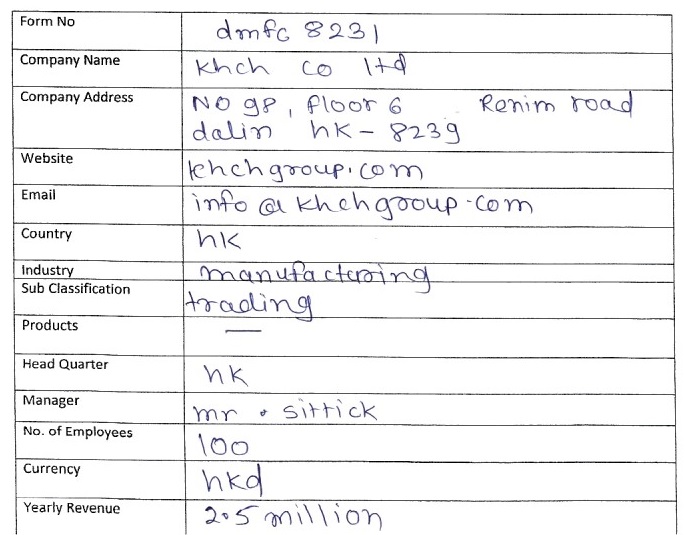 Form No dmfc 8231
Company Name khch co ltd
Company Address NO 98, floor 6 Renim road
dalin hk - 8239
Website khchgroup.com
Email info@khchgroup.com
Country hk
Industry manufacturing
Sub Classification trading
Products —
Head Quarter hk
Manager mr. sittick
No. of Employees 100
Currency hkd
Yearly Revenue 2.5 million